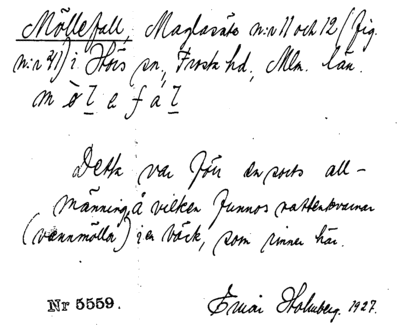 Möllefall, Maglasäte n:r 11 och 12 (fig.
n:r 21) i Hörs sn, Frosta hd, Mlm. län.
m ö l e f a l
Detta var förr en sorts all-
männing, å vilken funnos vattenkvarnar
(vannmöllor) i en bäck, som rinner här.
Nr 5559. Holmberg. 1927.